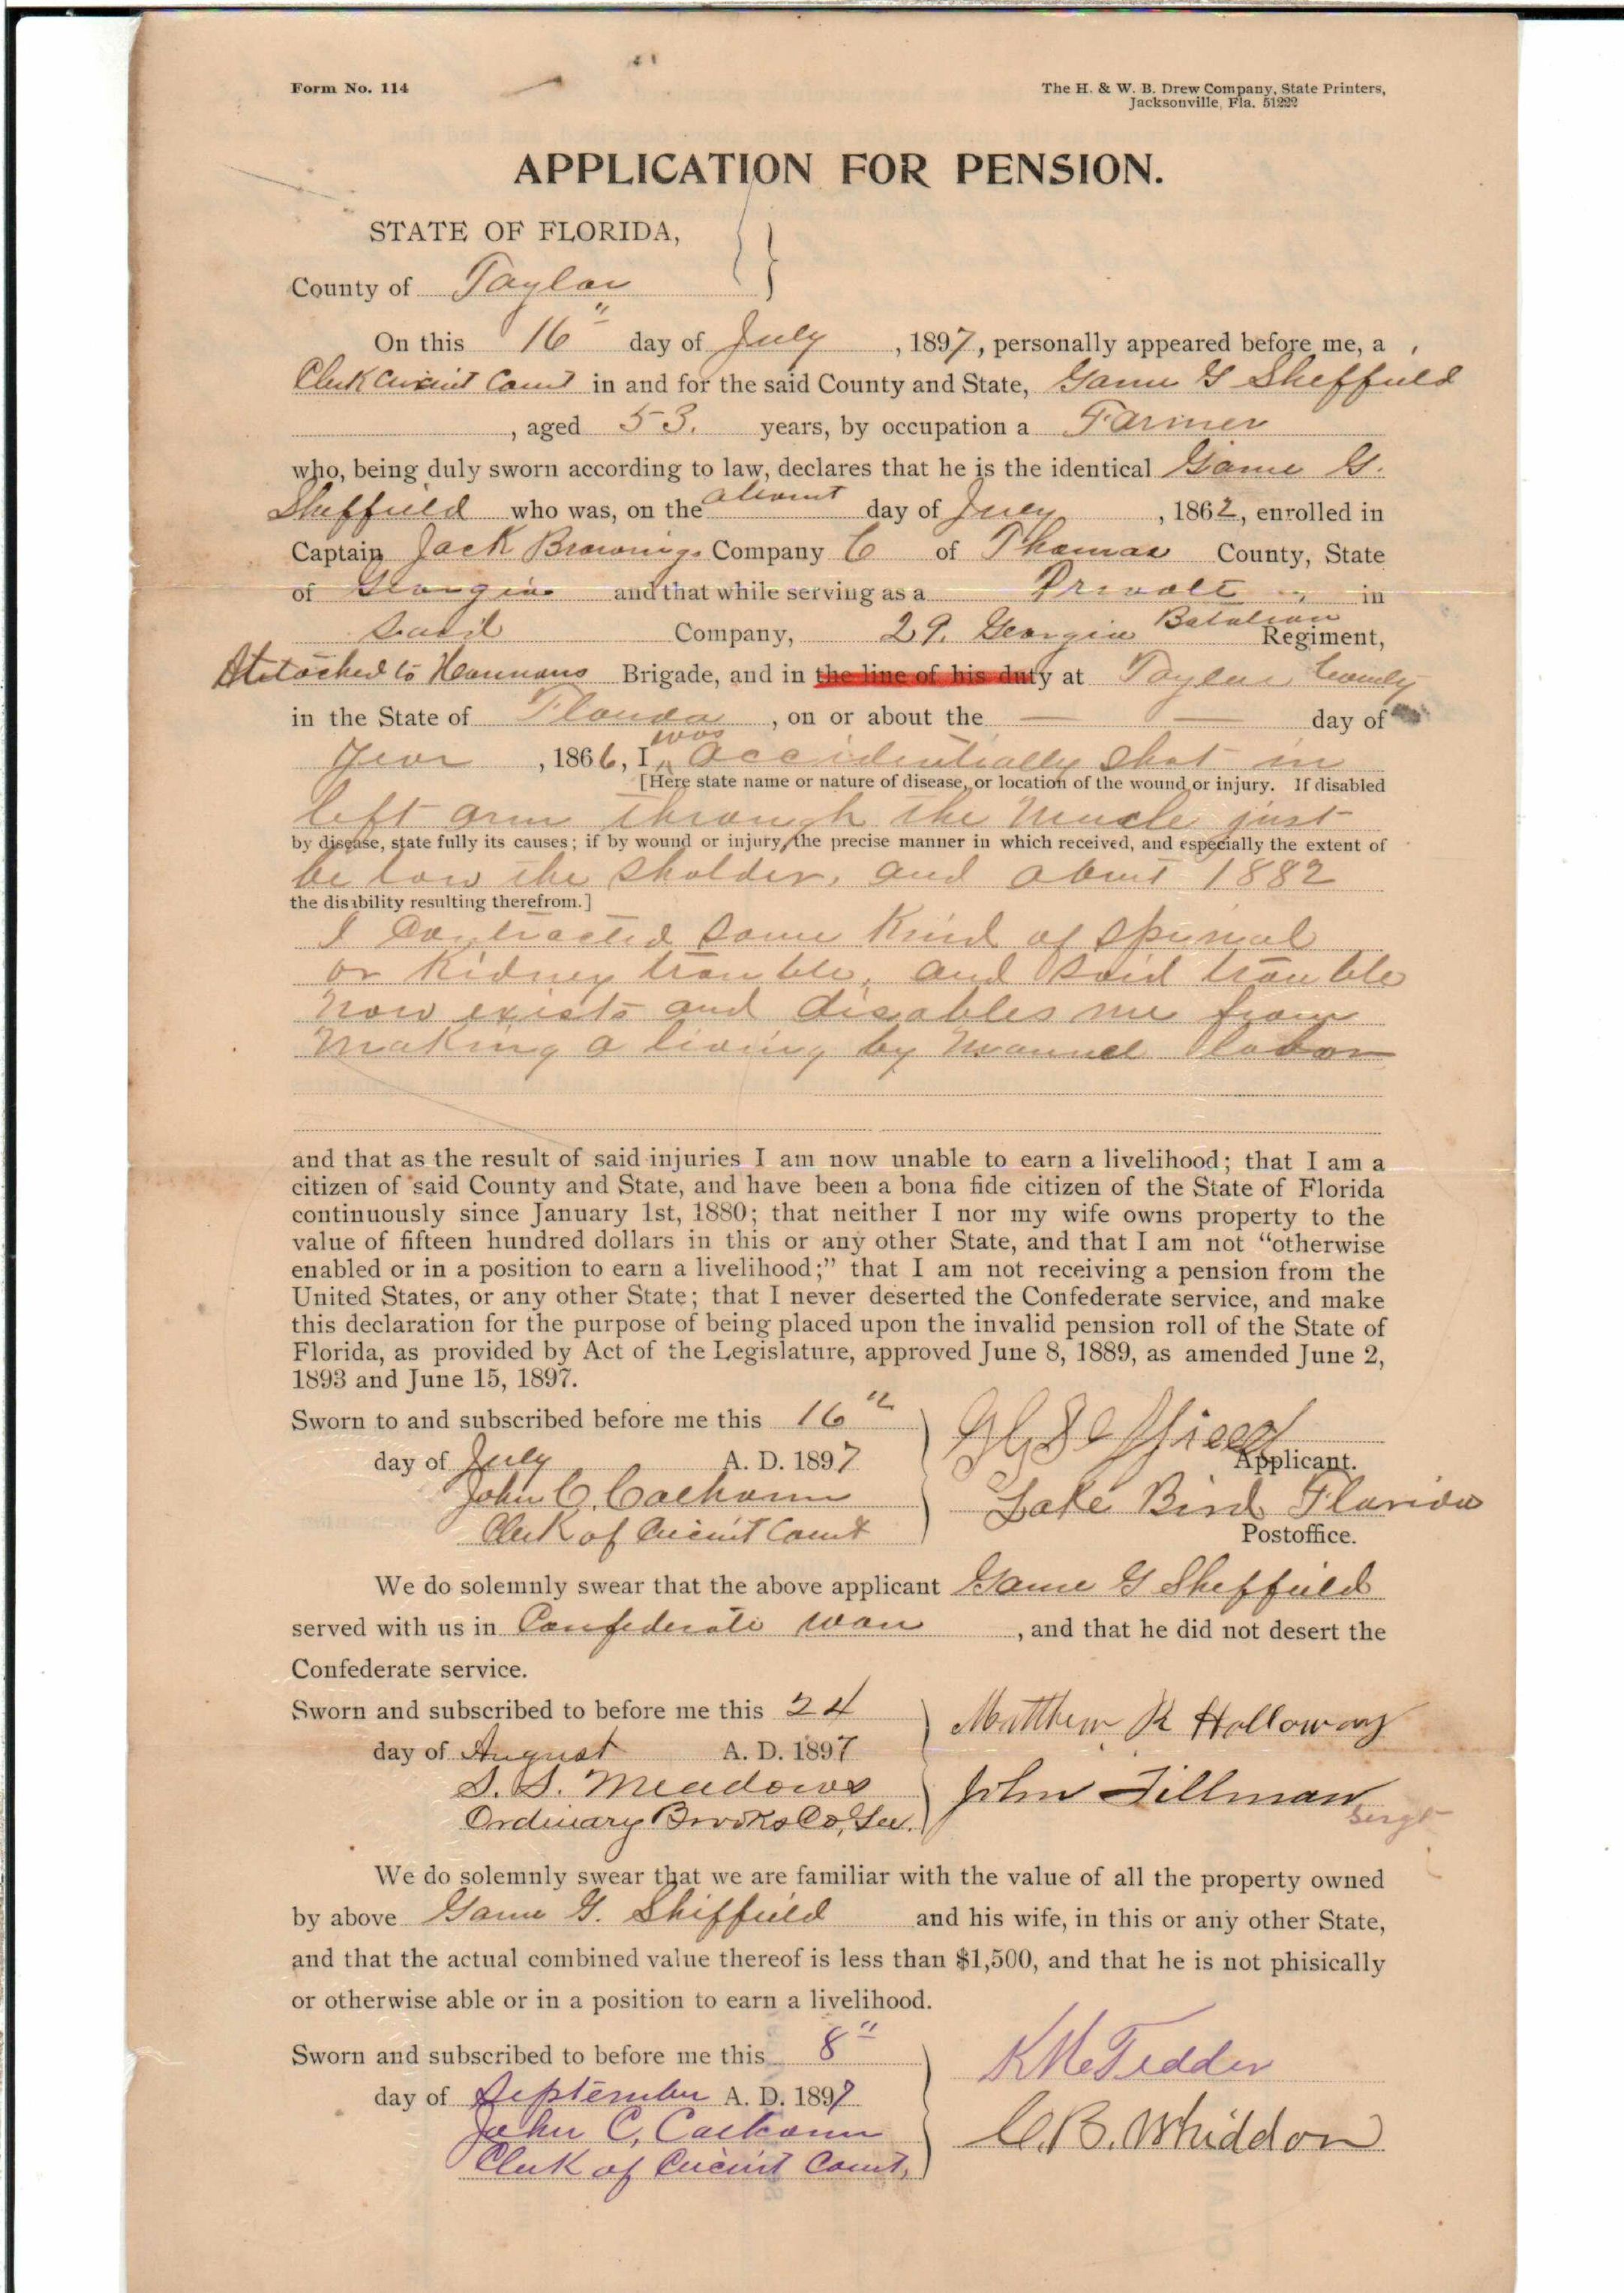 Form No. 114
The H. & W. B. Drew Company, State Printers,
Jacksonville, Fla. 51222
APPLICATION FOR PENSION.
STATE OF FLORIDA,
County of Taylor
On this 16" day of July , 1897, personally appeared before me, a
Clerk Circuit Court in and for the said County and State, Game G Sheffield
, aged 53. years, by occupation a Farmer
who, being duly sworn according to law, declares that he is the identical Game G.
Sheffield who was, on the about day of July , 1862, enrolled in
Captain Jack Brownings Company C of Thomas County, State
of Georgia and that while serving as a Private in
said Company, 29. Georgia Batalion Regiment,
Attached to Hannans Brigade, and in the line of his duty at Taylor County
in the State of Florida , on or about the — — day of
Year , 1866, I was accidentially shot in
[Here state name or nature of disease, or location of the wound or injury. If disabled
left arm through the Muscle just
by disease, state fully its causes; if by wound or injury, the precise manner in which received, and especially the extent of
be low the sholder, and about 1882
the disability resulting therefrom.]
I Contracted some Kind of spinial
or Kidney trouble, and said trouble
now exists and disables me from
making a living by manuel labor
and that as the result of said injuries I am now unable to earn a livelihood; that I am a
citizen of said County and State, and have been a bona fide citizen of the State of Florida
continuously since January 1st, 1880; that neither I nor my wife owns property to the
value of fifteen hundred dollars in this or any other State, and that I am not “otherwise
enabled or in a position to earn a livelihood;” that I am not receiving a pension from the
United States, or any other State; that I never deserted the Confederate service, and make
this declaration for the purpose of being placed upon the invalid pension roll of the State of
Florida, as provided by Act of the Legislature, approved June 8, 1889, as amended June 2,
1893 and June 15, 1897.
Sworn to and subscribed before me this 16th
G G Sheffield
day of July A. D. 1897
Applicant.
John C. Calhoun
Lake Bird Florida
Clerk of Circuit Court
Postoffice.
We do solemnly swear that the above applicant Game G Sheffield
served with us in Confederate war , and that he did not desert the
Confederate service.
Sworn and subscribed to before me this 24
Matthew R Holloway
day of August A. D. 1897
S. S. Meadows
John Tillman
Sergt
Ordinary Brooks Co, Ga.
We do solemnly swear that we are familiar with the value of all the property owned
by above Game G. Shiffield and his wife, in this or any other State,
and that the actual combined value thereof is less than $1,500, and that he is not phisically
or otherwise able or in a position to earn a livelihood.
Sworn and subscribed to before me this 8"
K McTedder
day of September A. D. 1897
John C, Calhoun
C. B. Whiddon
Clerk of Circuit Court,